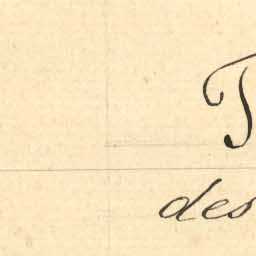 T
des